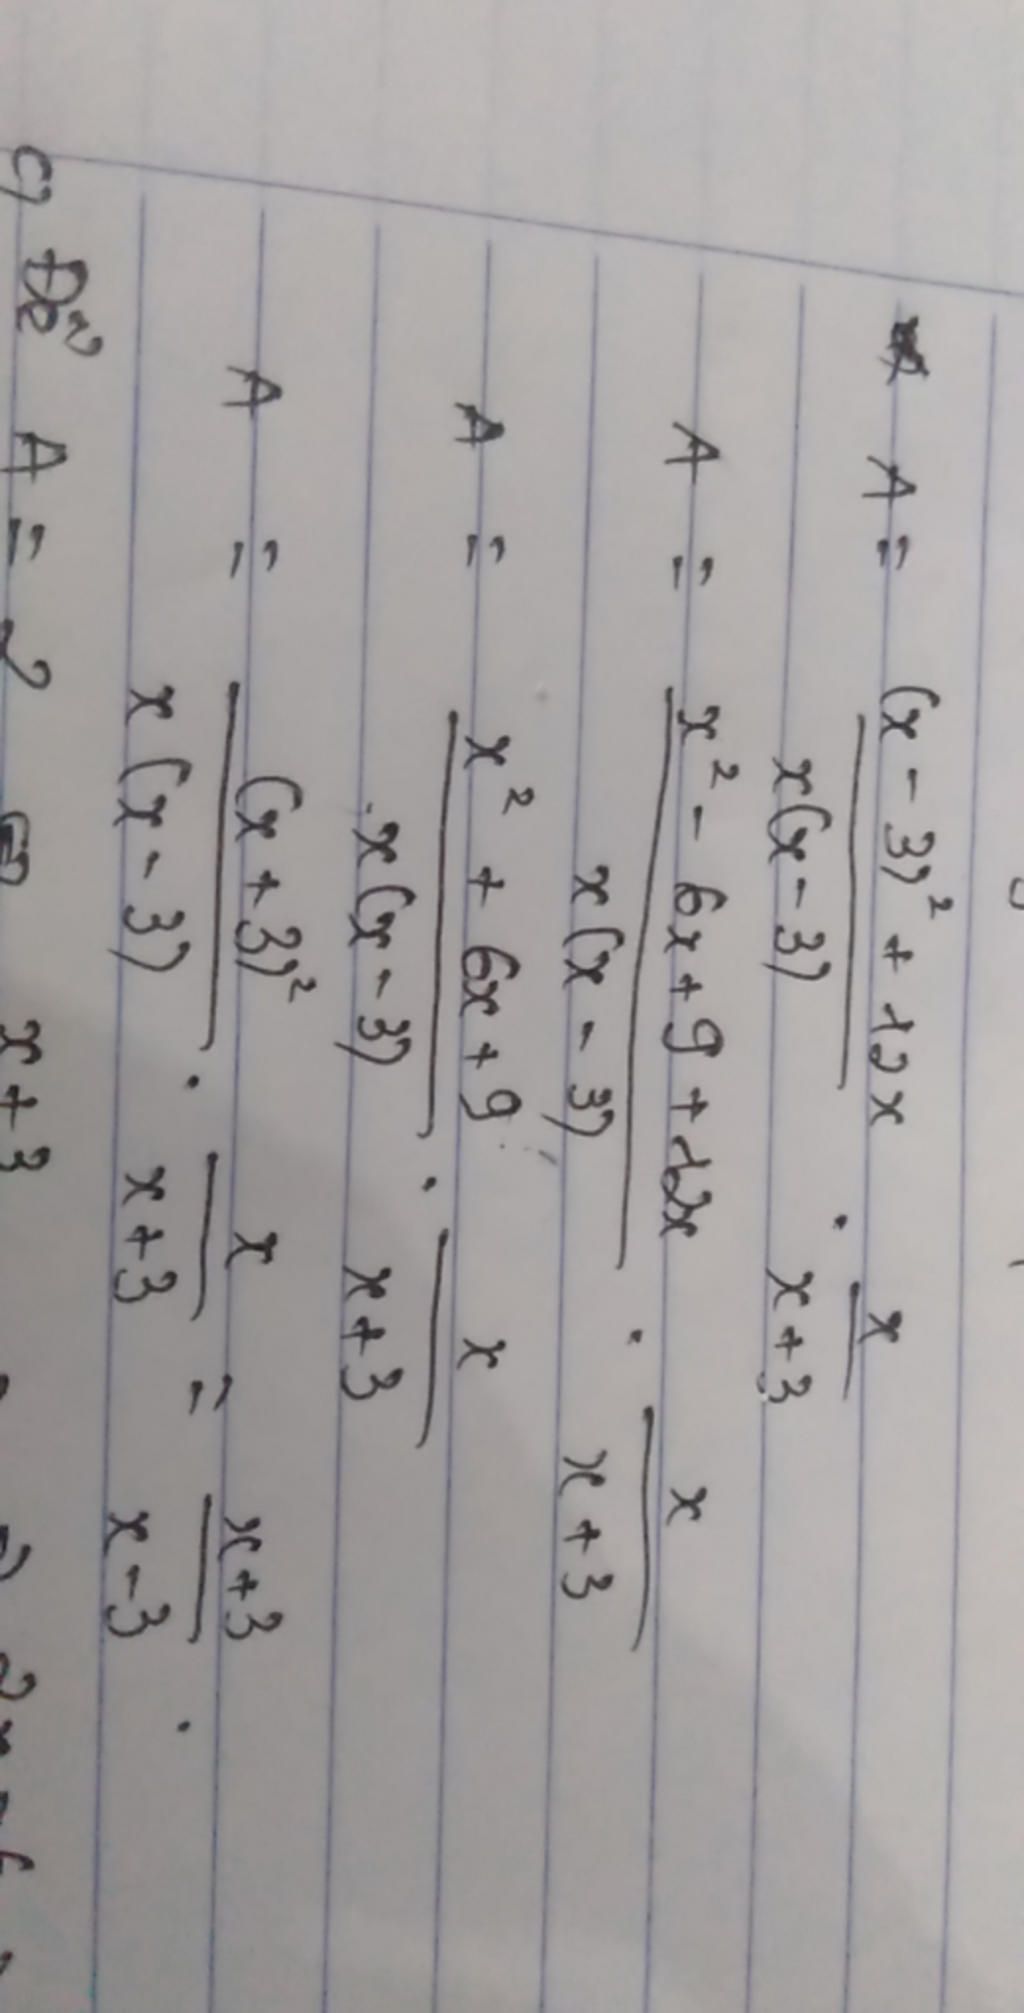 A = \frac{(x - 3)^2 + 12x}{x(x - 3)} . \frac{x}{x + 3}
A = \frac{x^2 - 6x + 9 + 12x}{x(x - 3)} . \frac{x}{x + 3}
A = \frac{x^2 + 6x + 9}{x(x - 3)} . \frac{x}{x + 3}
A = \frac{(x + 3)^2}{x(x - 3)} . \frac{x}{x + 3} = \frac{x + 3}{x - 3} .
c) Để A = 2 x + 3